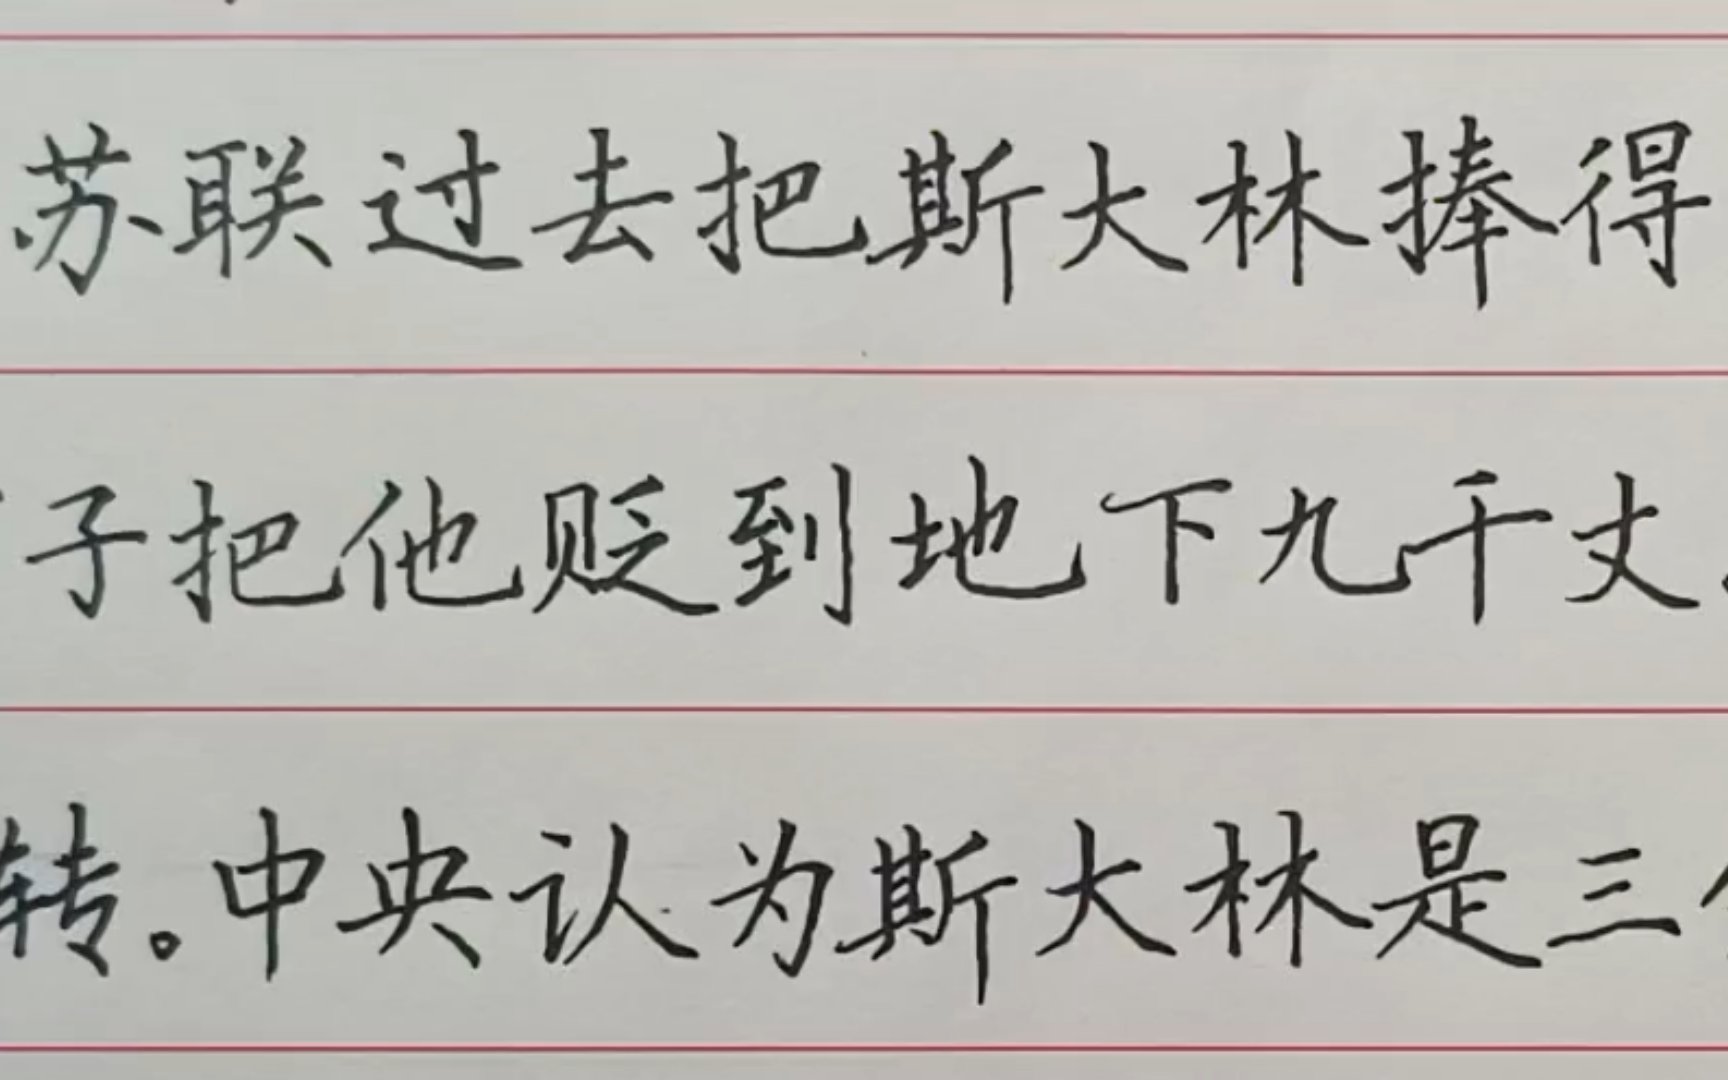 苏联过去把斯大林捧得
子把他贬到地下九千丈
转。中央认为斯大林是三